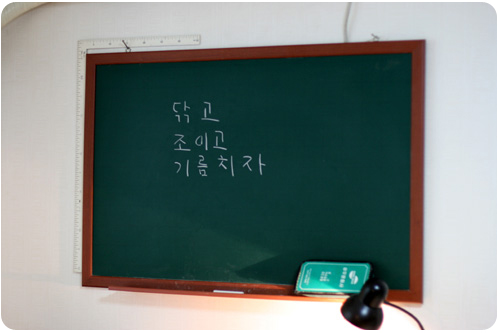 닦고
조이고
기름치자